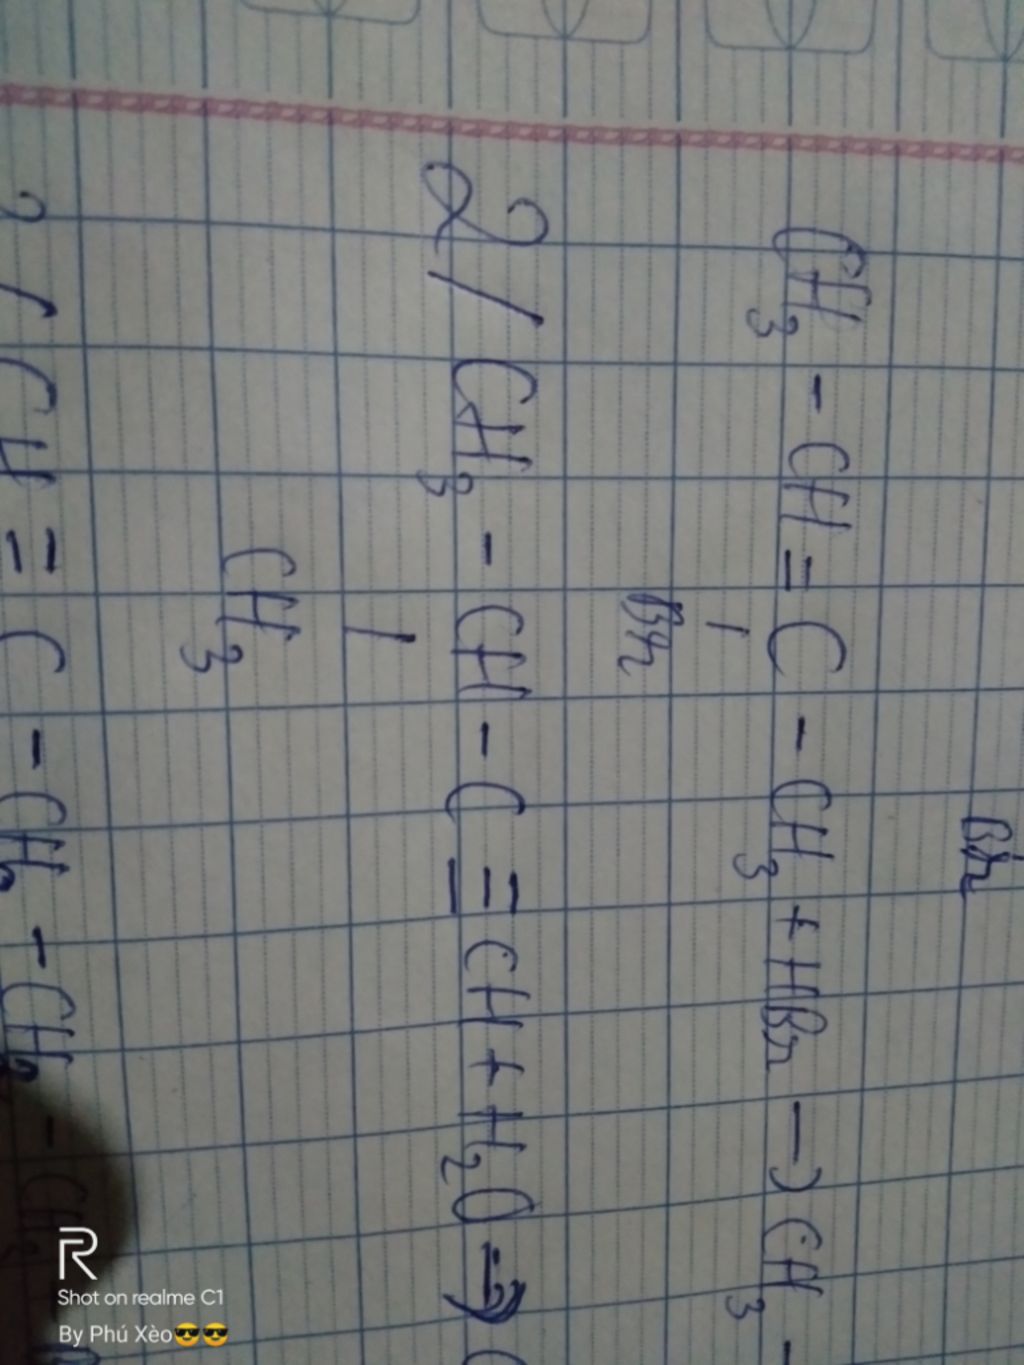 Br
CH3 - CH = C - CH3 + HBr → CH3 -
Br
2/ CH3 - CH - C ≡ CH + H2O →
CH3
CH ≡ C - CH2 - CH2 - CH3
Shot on realme C1
By Phú Xèo😎😎